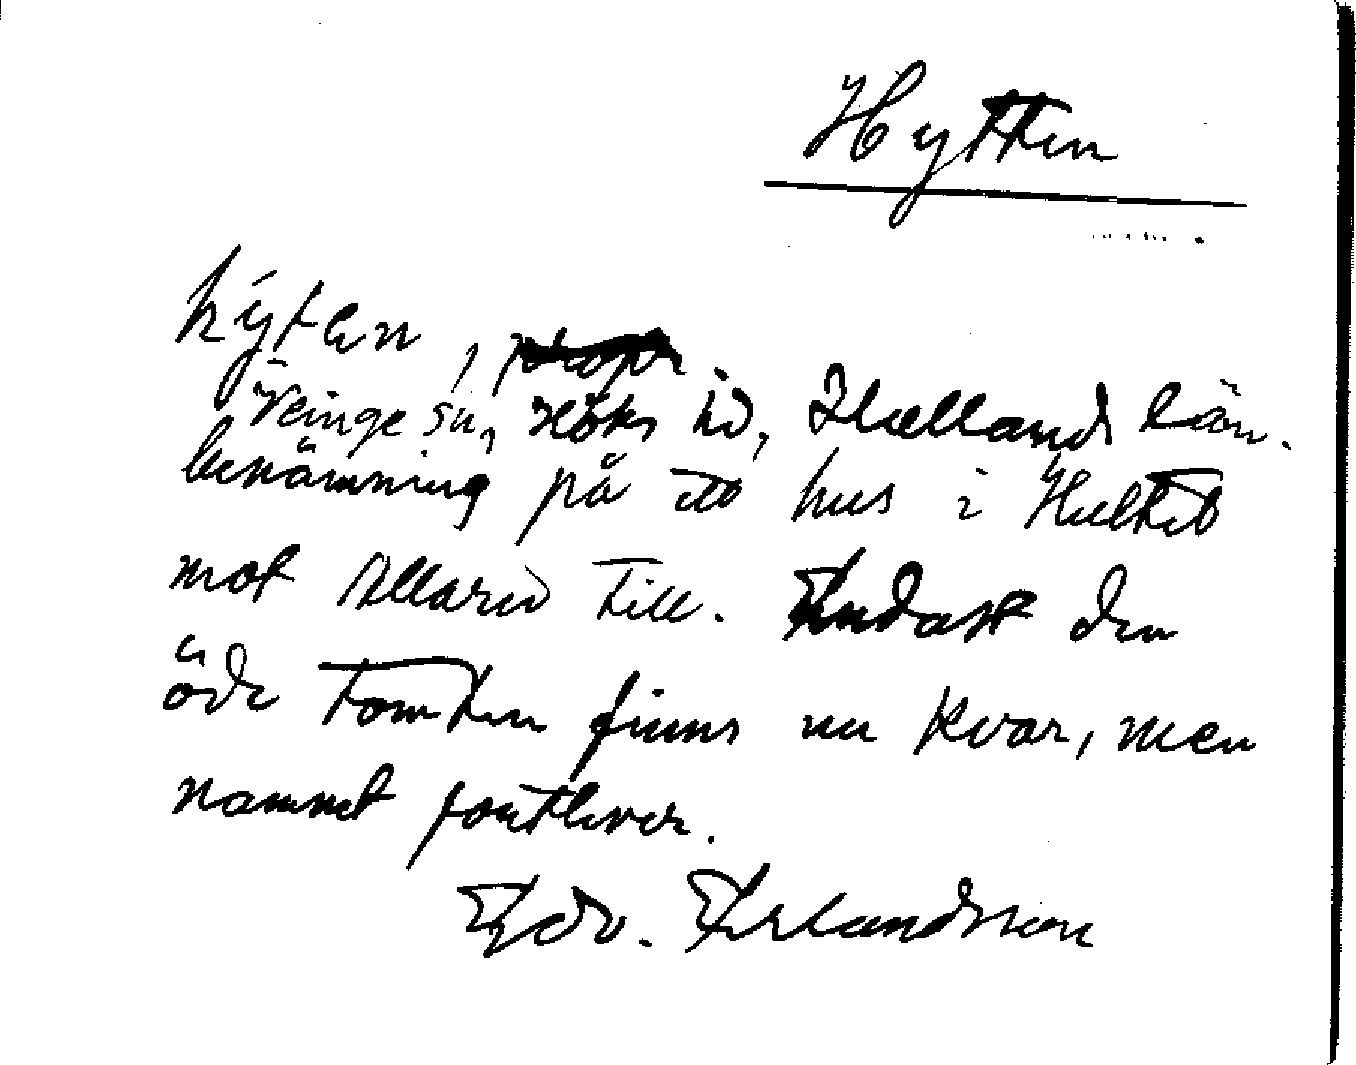 Hytten
hýten, propr.
Veinge sn, Höks hd, Hallands län.
benämning på ett hus i Hultet
mot Allared till. Endast den
öde tomten finns nu kvar, men
namnet fortlever.
Edv. Erlandsson